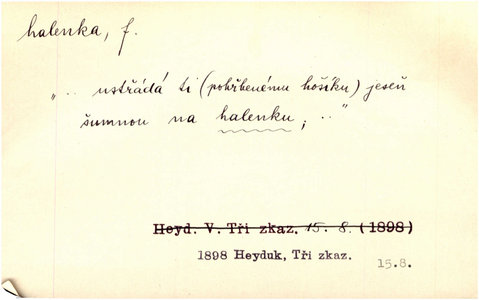 halenka, f.
„.. ustřádá ti (pohřbenému hošíku) jeseň
šumnou na halenku, .."
Heyd. V. Tři zkaz. 15. 8. (1898)
1898 Heyduk, Tři zkaz.
15.8.